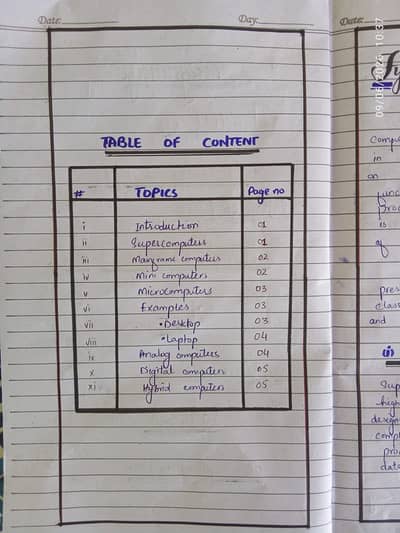 Date: Day:
TABLE OF CONTENT
# TOPICS Page no
i Introduction 01
ii Supercomputers 01
iii Mainframe computers 02
iv Mini computers 02
v Microcomputers 03
vi Examples 03
vii •Desktop 03
viii •Laptop 04
ix Analog computers 04
x Digital computers 05
xi Hybrid computers 05
Date:
Compu
in
on
func
proc
is
of
pres
class
and
(i)
Sup
high
design
compl
pro
data
09/06/2025 10:37